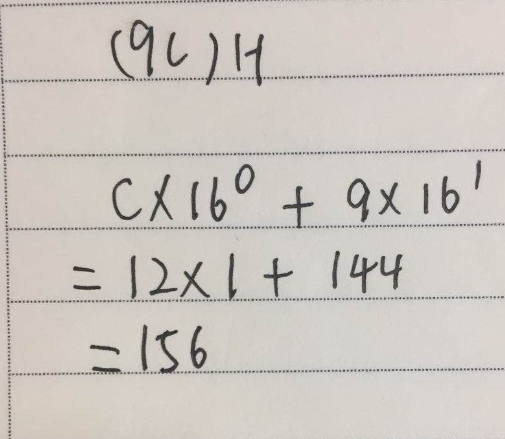 (9C)H
C×16⁰ + 9×16¹
= 12×1 + 144
= 156